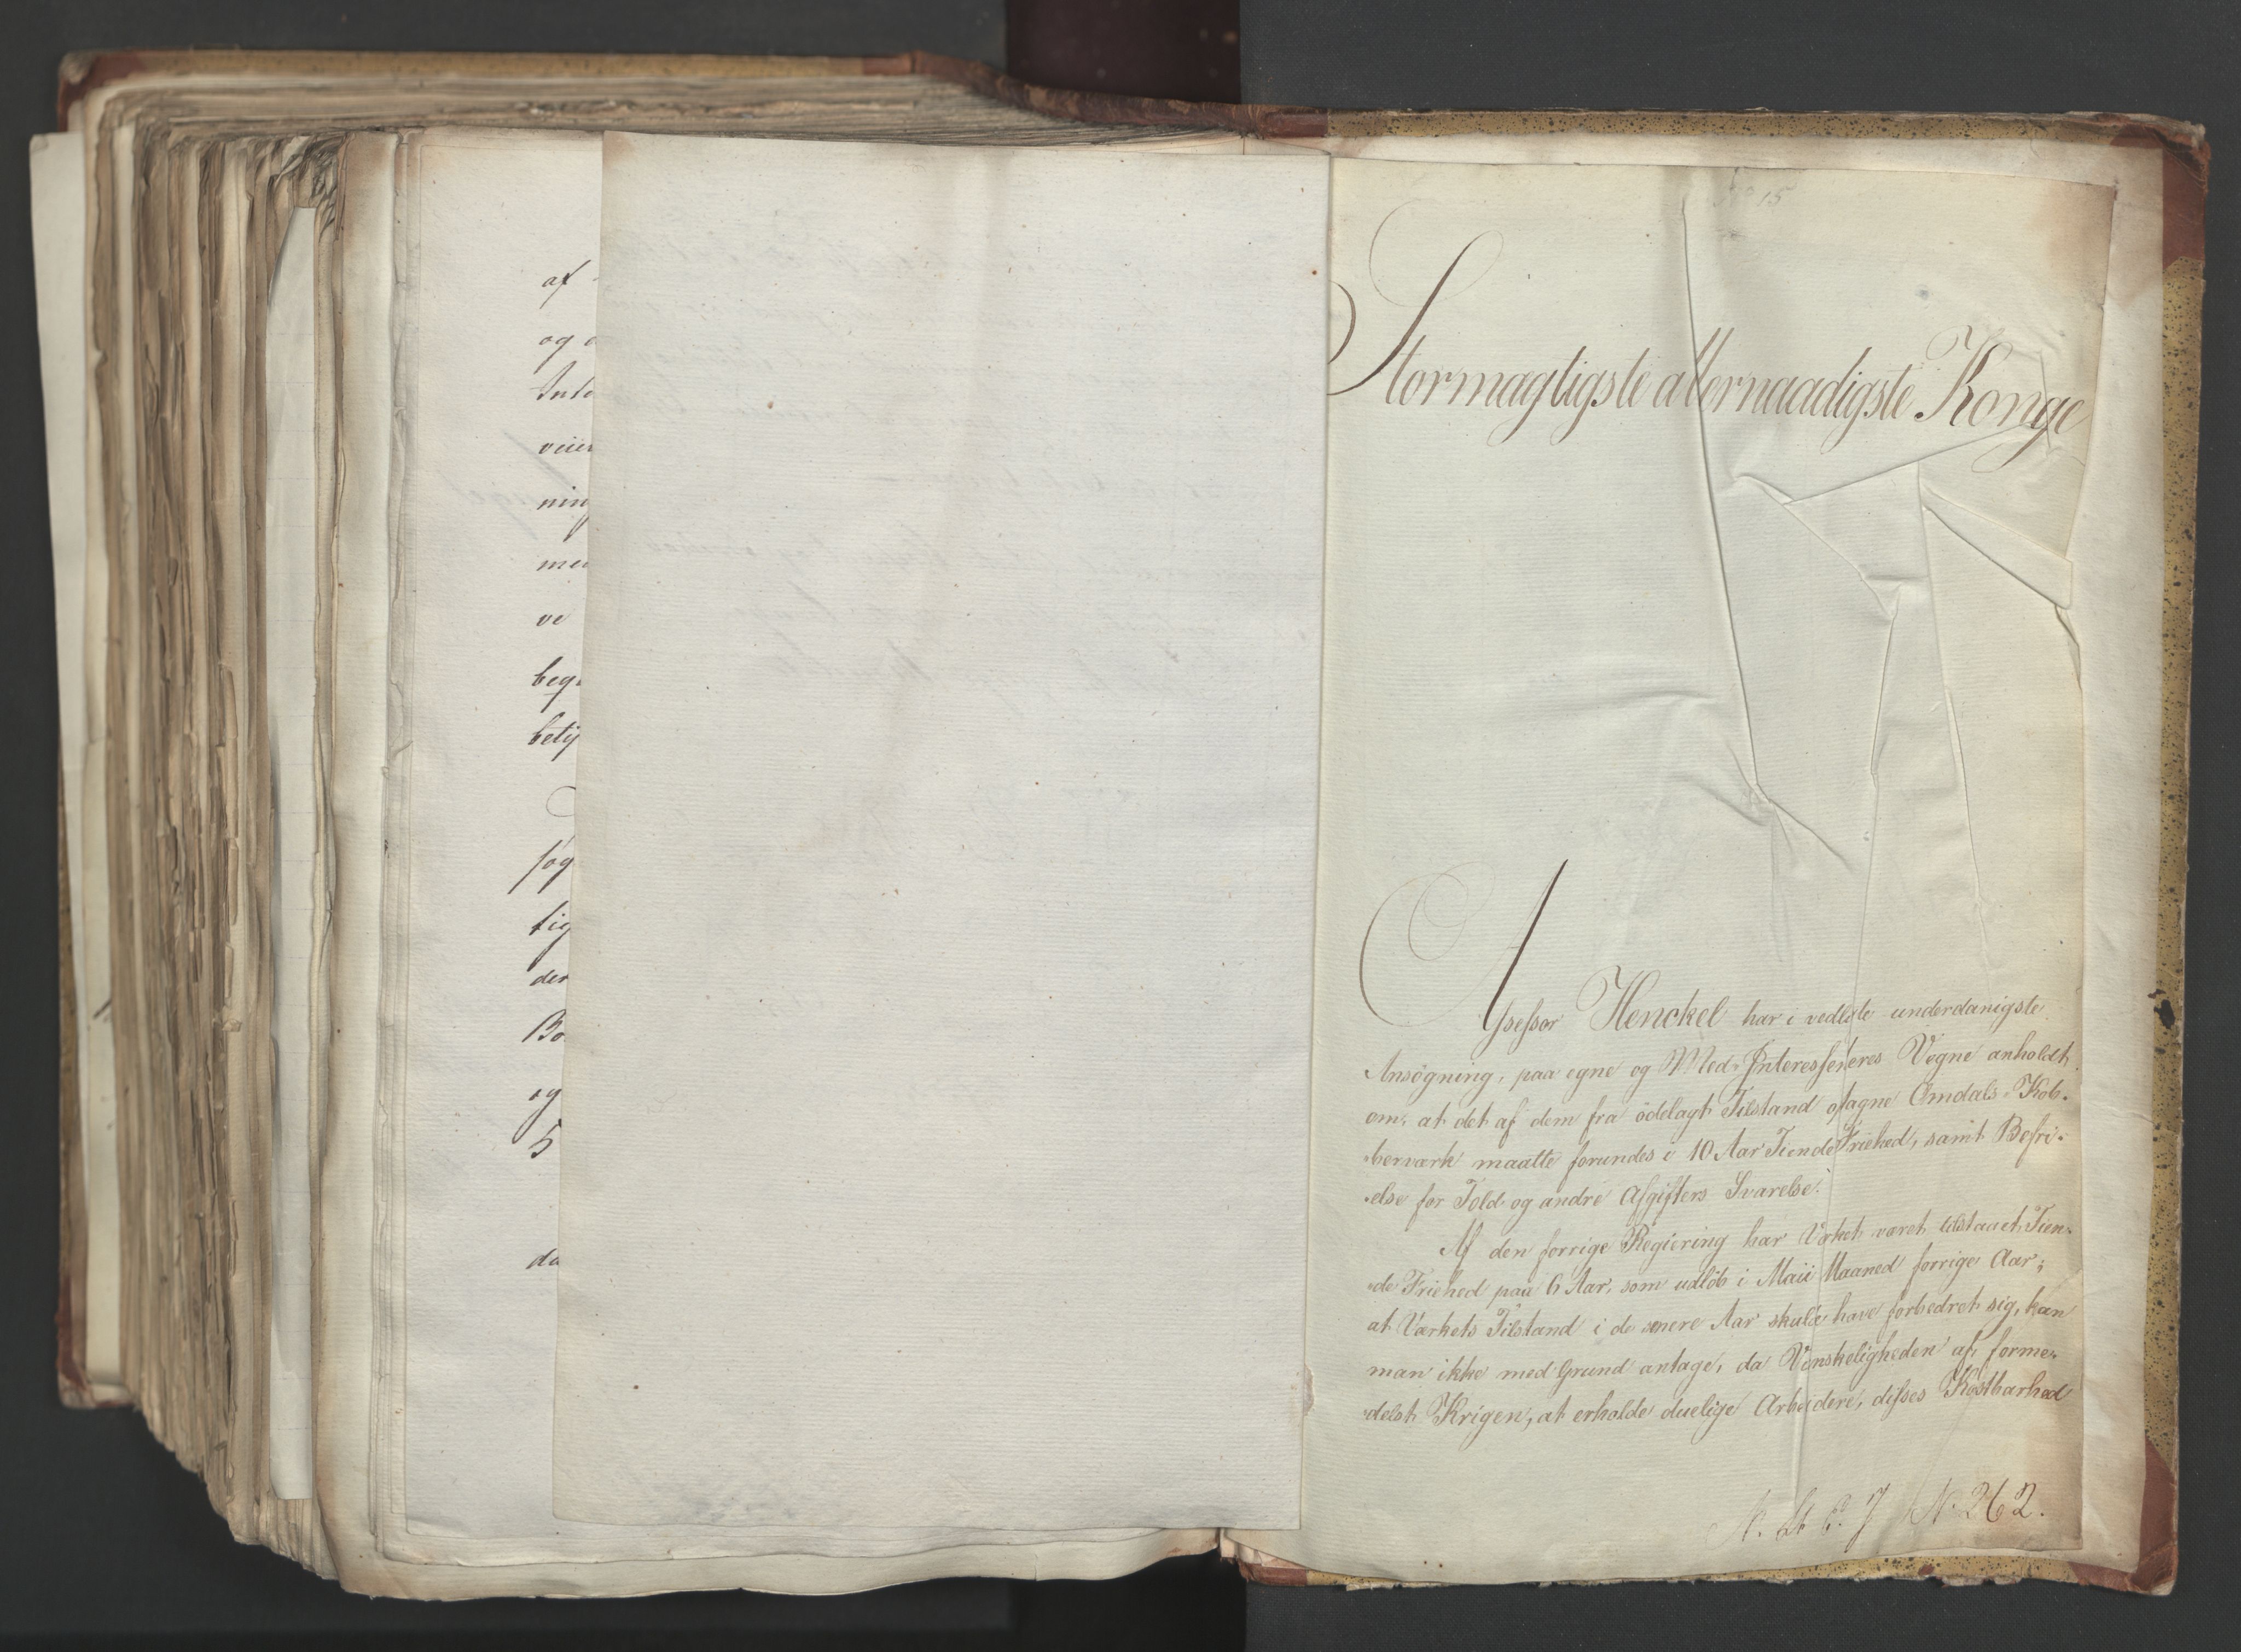 af
og
Inte
veier
ning
men
ve
beg
bety
søg
tig
der
Bo
og
5
da
No 15
Stormægtigste allernaadigste Konge
Assessor Henckel har i vedlagte underdanigste
Ansøgning, paa egne og Med-Interessenteres Vegne anholdt
om, at det af dem fra ödelagt Tilstand optagne Omdals-Kob-
-berværk maatte forundes i 10 Aar Tiende Friehed, samt Befri-
-else for Told og andre Afgifters Svarelse.
Af den forrige Regiering har Værket været tilstaaet Tien-
-de Friehed paa 6 Aar, som udlöb i Maii Maaned forrige Aar;
at Værkets Tilstand i de senere Aar skulde have forbedret sig, kan
man ikke med Grund antage, da Vanskeligheden af, forme-
-delst Krigen, at erholde duelige Arbeidere, disses Kostbarhed
N. 262.